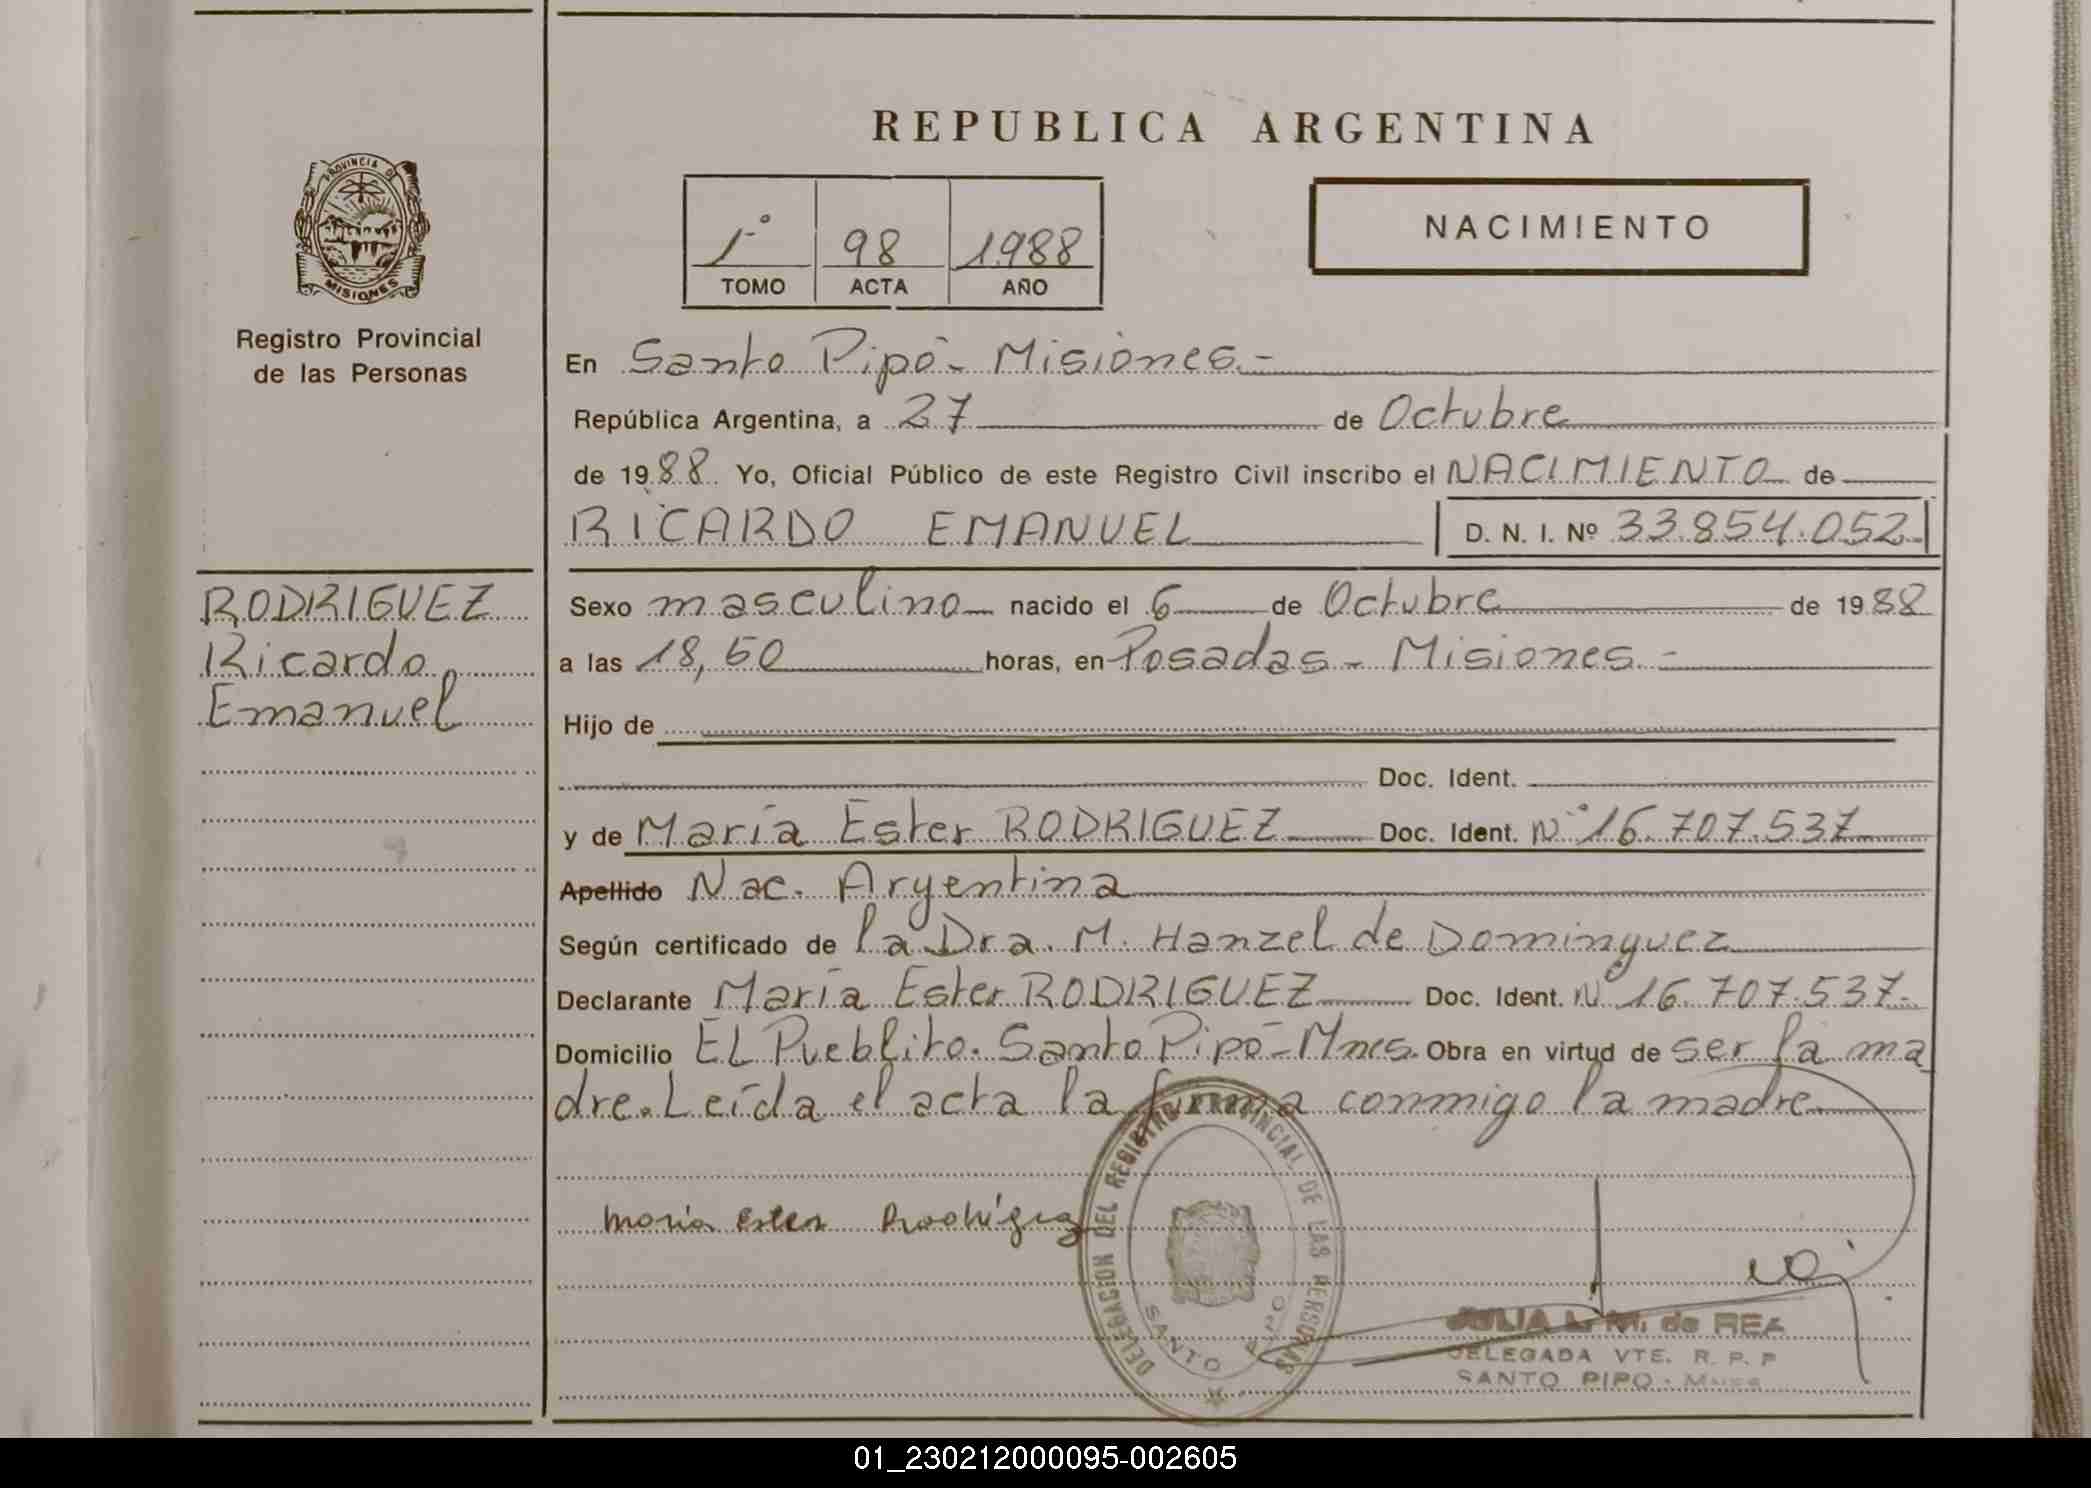 REPUBLICA ARGENTINA
PROVINCIA DE
MISIONES
Registro Provincial
de las Personas
1º 98 1988
TOMO ACTA AÑO
NACIMIENTO
En Santo Pipó - Misiones.-
República Argentina, a 27 de Octubre
de 1988 Yo, Oficial Público de este Registro Civil inscribo el NACIMIENTO de
RICARDO EMANUEL D. N. I. Nº 33.854.052
RODRIGUEZ
Ricardo
Emanuel
Sexo masculino nacido el 6 de Octubre de 1988
a las 18,50 horas, en Posadas - Misiones.-
Hijo de
Doc. Ident.
y de María Ester RODRIGUEZ Doc. Ident. Nº 16.707.537
Apellido Nac. Argentina
Según certificado de la Dra. M. Hanzel de Dominguez
Declarante María Ester RODRIGUEZ Doc. Ident. Nº 16.707.537.
Domicilio EL Pueblito. Santo Pipó - Mnes. Obra en virtud de ser la ma
dre. Leída el acta la firma conmigo la madre
María Ester Rodríguez
DELEGACION DEL REGISTRO PROVINCIAL DE LAS PERSONAS
SANTO PIPO
JULIA L. M. de REA
DELEGADA VTE. R. P. P
SANTO PIPO - Mnes
01_230212000095-002605